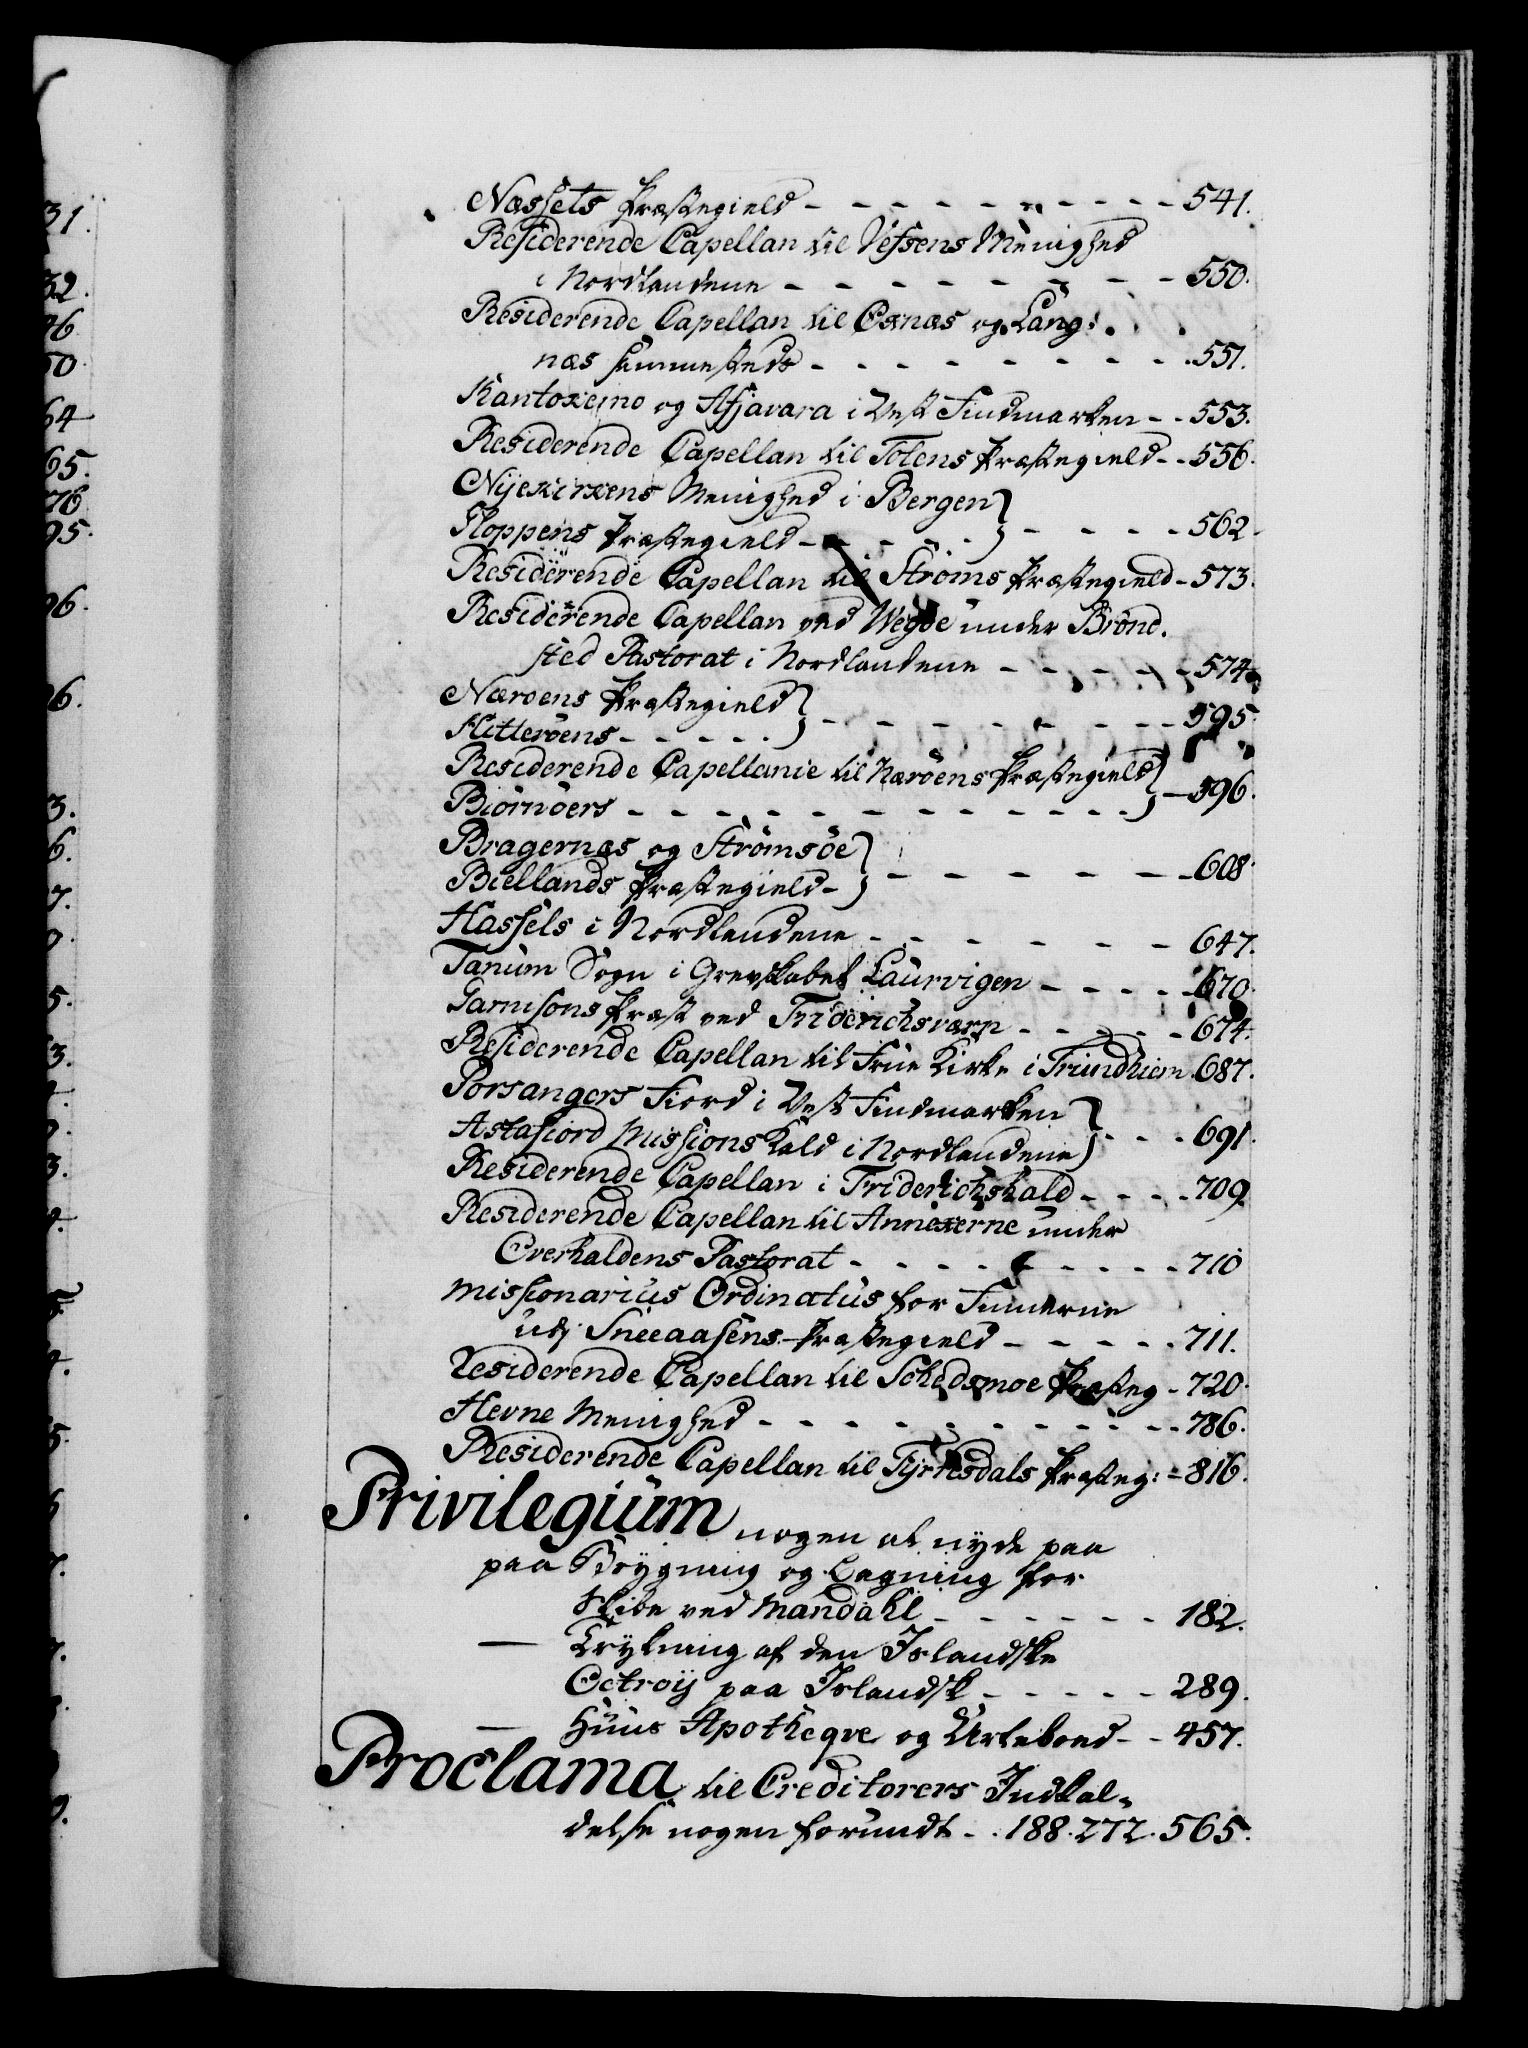 Næssets Præstegield - - - - - - - - - - 541.
Residerende Capellan til Vefsens Menighed
i Nordlandene - - - - - - - - 550.
Residerende Capellan til Oxnæs og Lang:
næs sammesteds - - - - - - - - 551.
Kantoxeino og Afjavara i Vest Findmarken - - 553.
Residerende Capellan til Totens Præstegield - - 556.
Nijekirkens Menighed i Bergen
Gloppens Præstegield - - - - - - - - - - 562
Residerende Capellan til Ströms Præstegield - 573.
Residerende Capellan ved Wegöe under Brönd.
sted Pastorat i Nordlandene - - - - - 574
Næröens Præstegield
Hitteröens - - - - - - - - - - - - 595.
Residerende Capellanie til Næröens Præstegield
Biörnöers - - - - - - - - - - - - 596.
Bragernæs og Strömsöe
Biellands Præstegield - - - - - - - 608.
Hassels i Nordlandene - - - - - - 647.
Tanum Sogn i Grevskabet Laurvigen - - - - - 670.
Garnisons Præst ved Friderichsværn - - - - - 674.
Residerende Capellan til Frue Kirke i Trundhiem 687.
Porsangers Fiord i Vest Findmarken
Astafiord Missions Kald i Nordlandene - - - - 691.
Residerende Capellan i Friderichshald - - - - 709.
Residerende Capellan til Annexerne under
Overhaldens Pastorat - - - - - - - - - 710
Missionarius Ordinatus for Finnerne
udj Sneeaasens Præstegield - - - - - 711.
Residerende Capellan til Schedsmoe Præsteg - 720.
Hevne Menighed - - - - - - - - - - 786.
Residerende Capellan til Fyrrisdals Præsteg: - 816.
Privilegium nogen at nyde paa
paa Bögning og Lagning for
Skibe ved Mandahl - - - - - - 182.
— Trykning af den Islandske
Octroij paa Islandsk - - - - - 289.
— Huus Apotheqve og Urteboed - - 457.
Proclama til Creditorers Indkal-
delse nogen forundt - . 188. 272. 565.